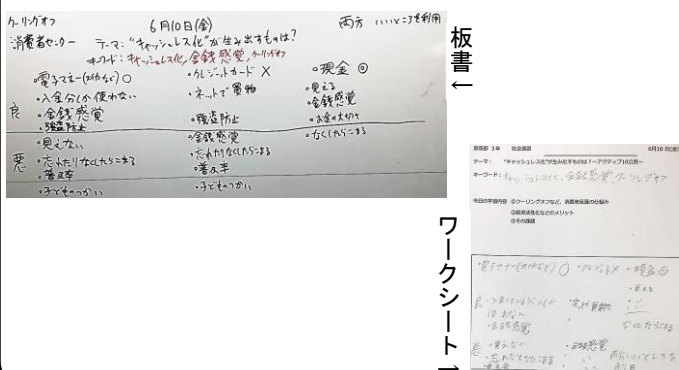 クーリングオフ
6月10日(金)
両方 いいところを利用
消費者センター
テーマ:"キャッシュレス化"が生み出すものは?
キーワード:キャッシュレス化,金銭感覚,クーリングオフ
・電子マネー(スイカなど)○ ・クレジットカード× ・現金◎
良
・入金分しか使わない
・金銭感覚
・強盗防止
・ネットで買物
・強盗防止
・見える
・金銭感覚
・お金の大切さ
悪
・見えない
・忘れたりなくしたらこまる
・普及率
・子どものつかい
・金銭感覚
・忘れたりなくしたらこまる
・普及率
・子どものつかい
・なくしたらこまる
板書←
ワークシート→
高等部 3年 社会
6月10日(金)
テーマ: "キャッシュレス化"が生み出すものは?~アクティブ10公民~
キーワード:キャッシュレス化,金銭感覚,クーリングオフ
今日の学習内容 ①クーリングオフなど、消費者保護の仕組み
②経済活性化などのメリット
③その課題
・電子マネー(スイカなど)○ ・クレジット× ・現金◎
・見える
良
・金銭感覚
悪 ・見えない ・金銭感覚